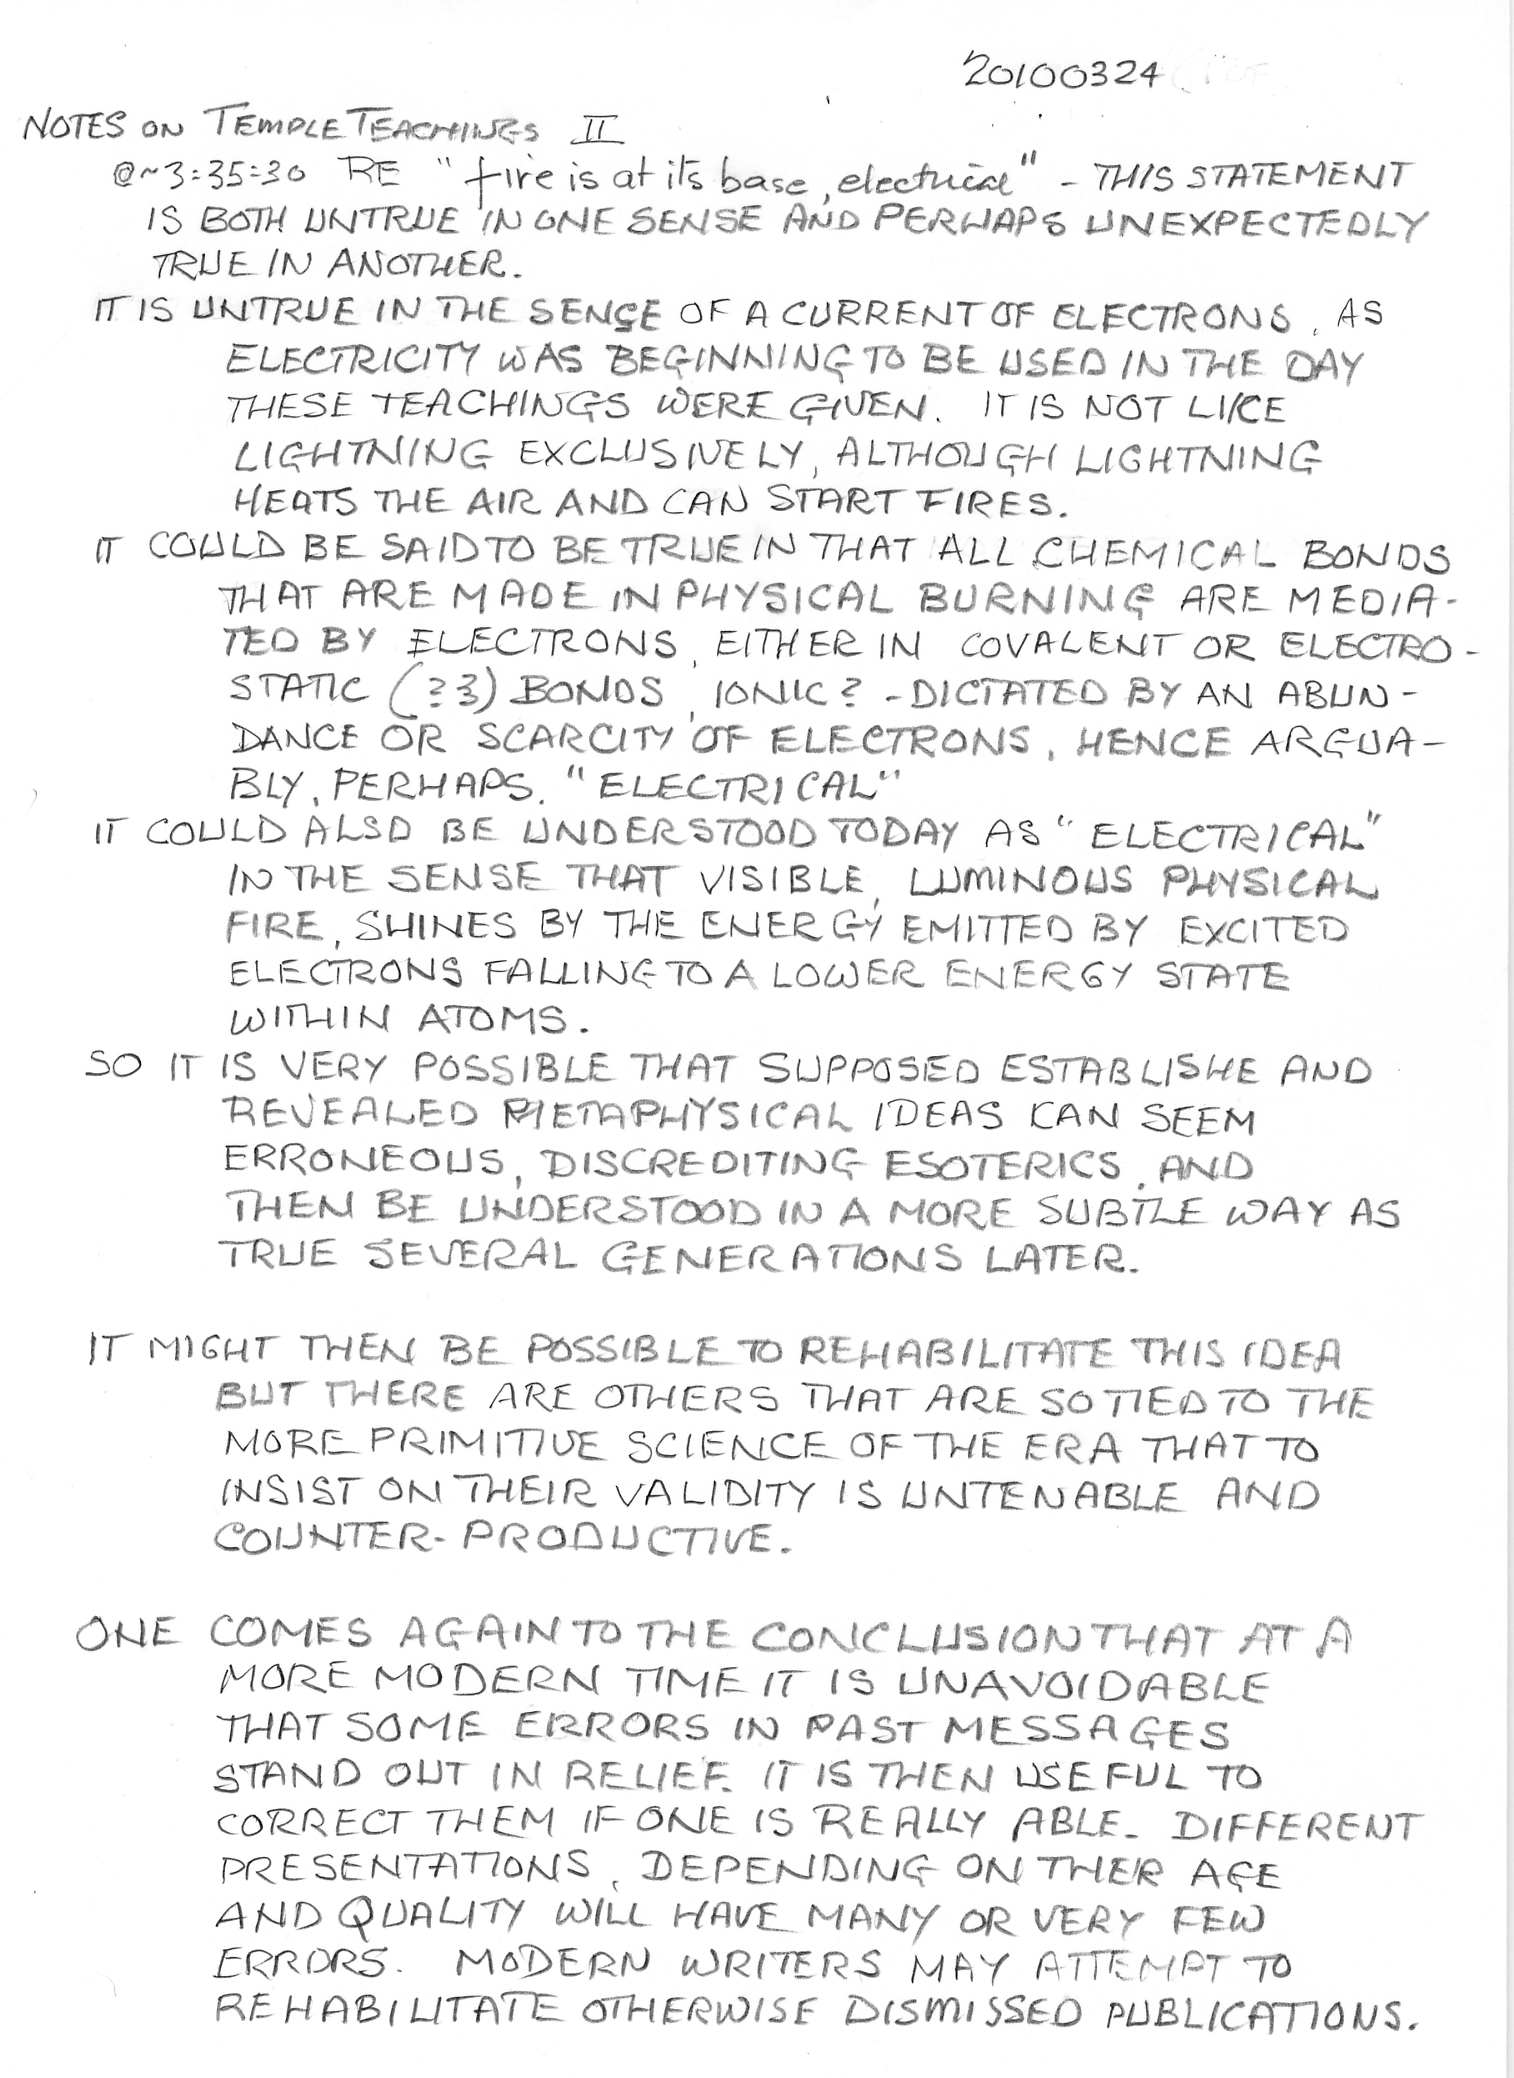 20100324
NOTES ON TEMPLE TEACHINGS II
@~3:35:30 RE "fire is at its base, electrical" - THIS STATEMENT
IS BOTH UNTRUE IN ONE SENSE AND PERHAPS UNEXPECTEDLY
TRUE IN ANOTHER.
IT IS UNTRUE IN THE SENSE OF A CURRENT OF ELECTRONS, AS
ELECTRICITY WAS BEGINNING TO BE USED IN THE DAY
THESE TEACHINGS WERE GIVEN. IT IS NOT LIKE
LIGHTNING EXCLUSIVELY, ALTHOUGH LIGHTNING
HEATS THE AIR AND CAN START FIRES.
IT COULD BE SAID TO BE TRUE IN THAT ALL CHEMICAL BONDS
THAT ARE MADE IN PHYSICAL BURNING ARE MEDIA-
TED BY ELECTRONS, EITHER IN COVALENT OR ELECTRO-
STATIC (??) BONDS, IONIC? - DICTATED BY AN ABUN-
DANCE OR SCARCITY OF ELECTRONS, HENCE ARGUA-
BLY, PERHAPS, "ELECTRICAL"
IT COULD ALSO BE UNDERSTOOD TODAY AS "ELECTRICAL"
IN THE SENSE THAT VISIBLE, LUMINOUS PHYSICAL
FIRE, SHINES BY THE ENERGY EMITTED BY EXCITED
ELECTRONS FALLING TO A LOWER ENERGY STATE
WITHIN ATOMS.
SO IT IS VERY POSSIBLE THAT SUPPOSED ESTABLISHE AND
REVEALED METAPHYSICAL IDEAS CAN SEEM
ERRONEOUS, DISCREDITING ESOTERICS, AND
THEN BE UNDERSTOOD IN A MORE SUBTLE WAY AS
TRUE SEVERAL GENERATIONS LATER.
IT MIGHT THEN BE POSSIBLE TO REHABILITATE THIS IDEA
BUT THERE ARE OTHERS THAT ARE SO TIED TO THE
MORE PRIMITIVE SCIENCE OF THE ERA THAT TO
INSIST ON THEIR VALIDITY IS UNTENABLE AND
COUNTER-PRODUCTIVE.
ONE COMES AGAIN TO THE CONCLUSION THAT AT A
MORE MODERN TIME IT IS UNAVOIDABLE
THAT SOME ERRORS IN PAST MESSAGES
STAND OUT IN RELIEF. IT IS THEN USEFUL TO
CORRECT THEM IF ONE IS REALLY ABLE. DIFFERENT
PRESENTATIONS, DEPENDING ON THEIR AGE
AND QUALITY WILL HAVE MANY OR VERY FEW
ERRORS. MODERN WRITERS MAY ATTEMPT TO
REHABILITATE OTHERWISE DISMISSED PUBLICATIONS.